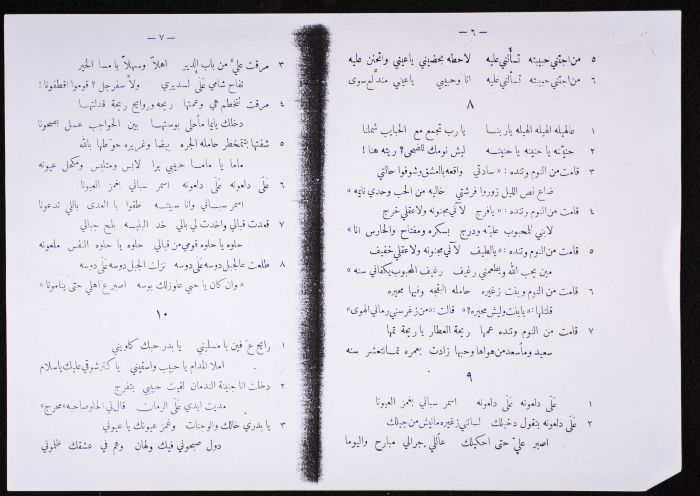 — ٦ —
٥ من اجتني حبيبته تسألني عليه لاحطه بحضيني ياعيني واتحنن عليه
٦ من اجتني حبيبته تسألني عليه انا وحبيبي ياعيني سوى
٨
١ عالهيله الهيله الهيله يا ربنا يا رب تجمع مع الحبايب شملنا
٢ حنينه يا حنينه يا حنينه ليش نومك للضحى؟ ريته هنا!
٣ قامت من النوم وتنده: «سادتي واقعه بالعشق وشوفوا حالتي
ضاع نص الليل زوروا فرشتي خالبه من الحب وحدي نايمه»
٤ قامت من النوم وتنده: «يا فرج لاني مجنونه ولا عقلي خرج
لابني للمحبوب عليّه ودرج بسكره ومفتاح والحارس انا»
٥ قامت من النوم وتنده: «يا لطيف لاني مجنونه ولا عقلي خفيف
مين يحب الله ويطعمني رغيف رغيف المحبوب يكفاني سنه»
٦ قامت من النوم وبنت زغيره حامله البقجه وفيها محيره
قلتلها: «يا بنت وليش محيره؟» قالت: «من زغرسني رماني الهوى»
٧ قامت من النوم وتنده عمها ريحة العطار يا ريحة تمها
سعيد وما سعد من هواها وحبها زادت بعمره تمانتعشر سنه
٩
١ على دلعونه على دلعونه اسمر سباني بغمز العيونا
٢ على دلعونه بتقول دخيلك لساتني زغيره مانيش من جيلك
اصبر عليّ حتى احكيلك عاللي جرالي مبارح واليوما
— ٧ —
٣ مرقت عليّ من باب الدير اهلاً وسهلاً يا مسا الخير
تفاح شامي على لسديري ولا سفرجل؟ قوموا اقطفونا!
٤ مرقت تتخطم هي وعمتها ريحه وروايح ريحة قدلتها
دخلك يا يما ما حلى بوستها بين الحواجب عسل اصحونا
٥ شفتها بتتمخطر حامله الجره بيضا وغريره حوّطها بالله
ماما يا ماما حبيبي برا لابس ومتلبس ومكحل عيونه
٦ على دلعونه على دلعونه اسمر سباني بغمز العيونا
اسمر سباني وانا سبيته طقوا يا العدى باللي تدعونا
٧ قعدت قبالي واخدت لي بالي خد البنيه بلح جبالي
حلوه يا حلوه قومي من قبالي حلوه يا حلوه النفس ملعونه
٨ طلعت عالجبل دوسه على دوسه نزلت الجبل دوسه على دوسه
«وان كان يا حبي علوزلك بوسه اصبر ع اهلي حتى يناموا»
١٠
١ رايح ع فين يا مسليني يا بدر حبك كاويني
املا المدام يا حبيب واسقيني يا كتر شوقي عليك يا سلام
٢ دخلت انا جنينة الندمان لقيت حبيبي بتفرج
مديت ايدي على الرمان قال لي الحلو صاحبه «محرج»
٣ يا بدري خالك والوجنات وغمز عيونك يا عيوني
دول صبحوني فيك ولهان وهم في عشقك ظلموني